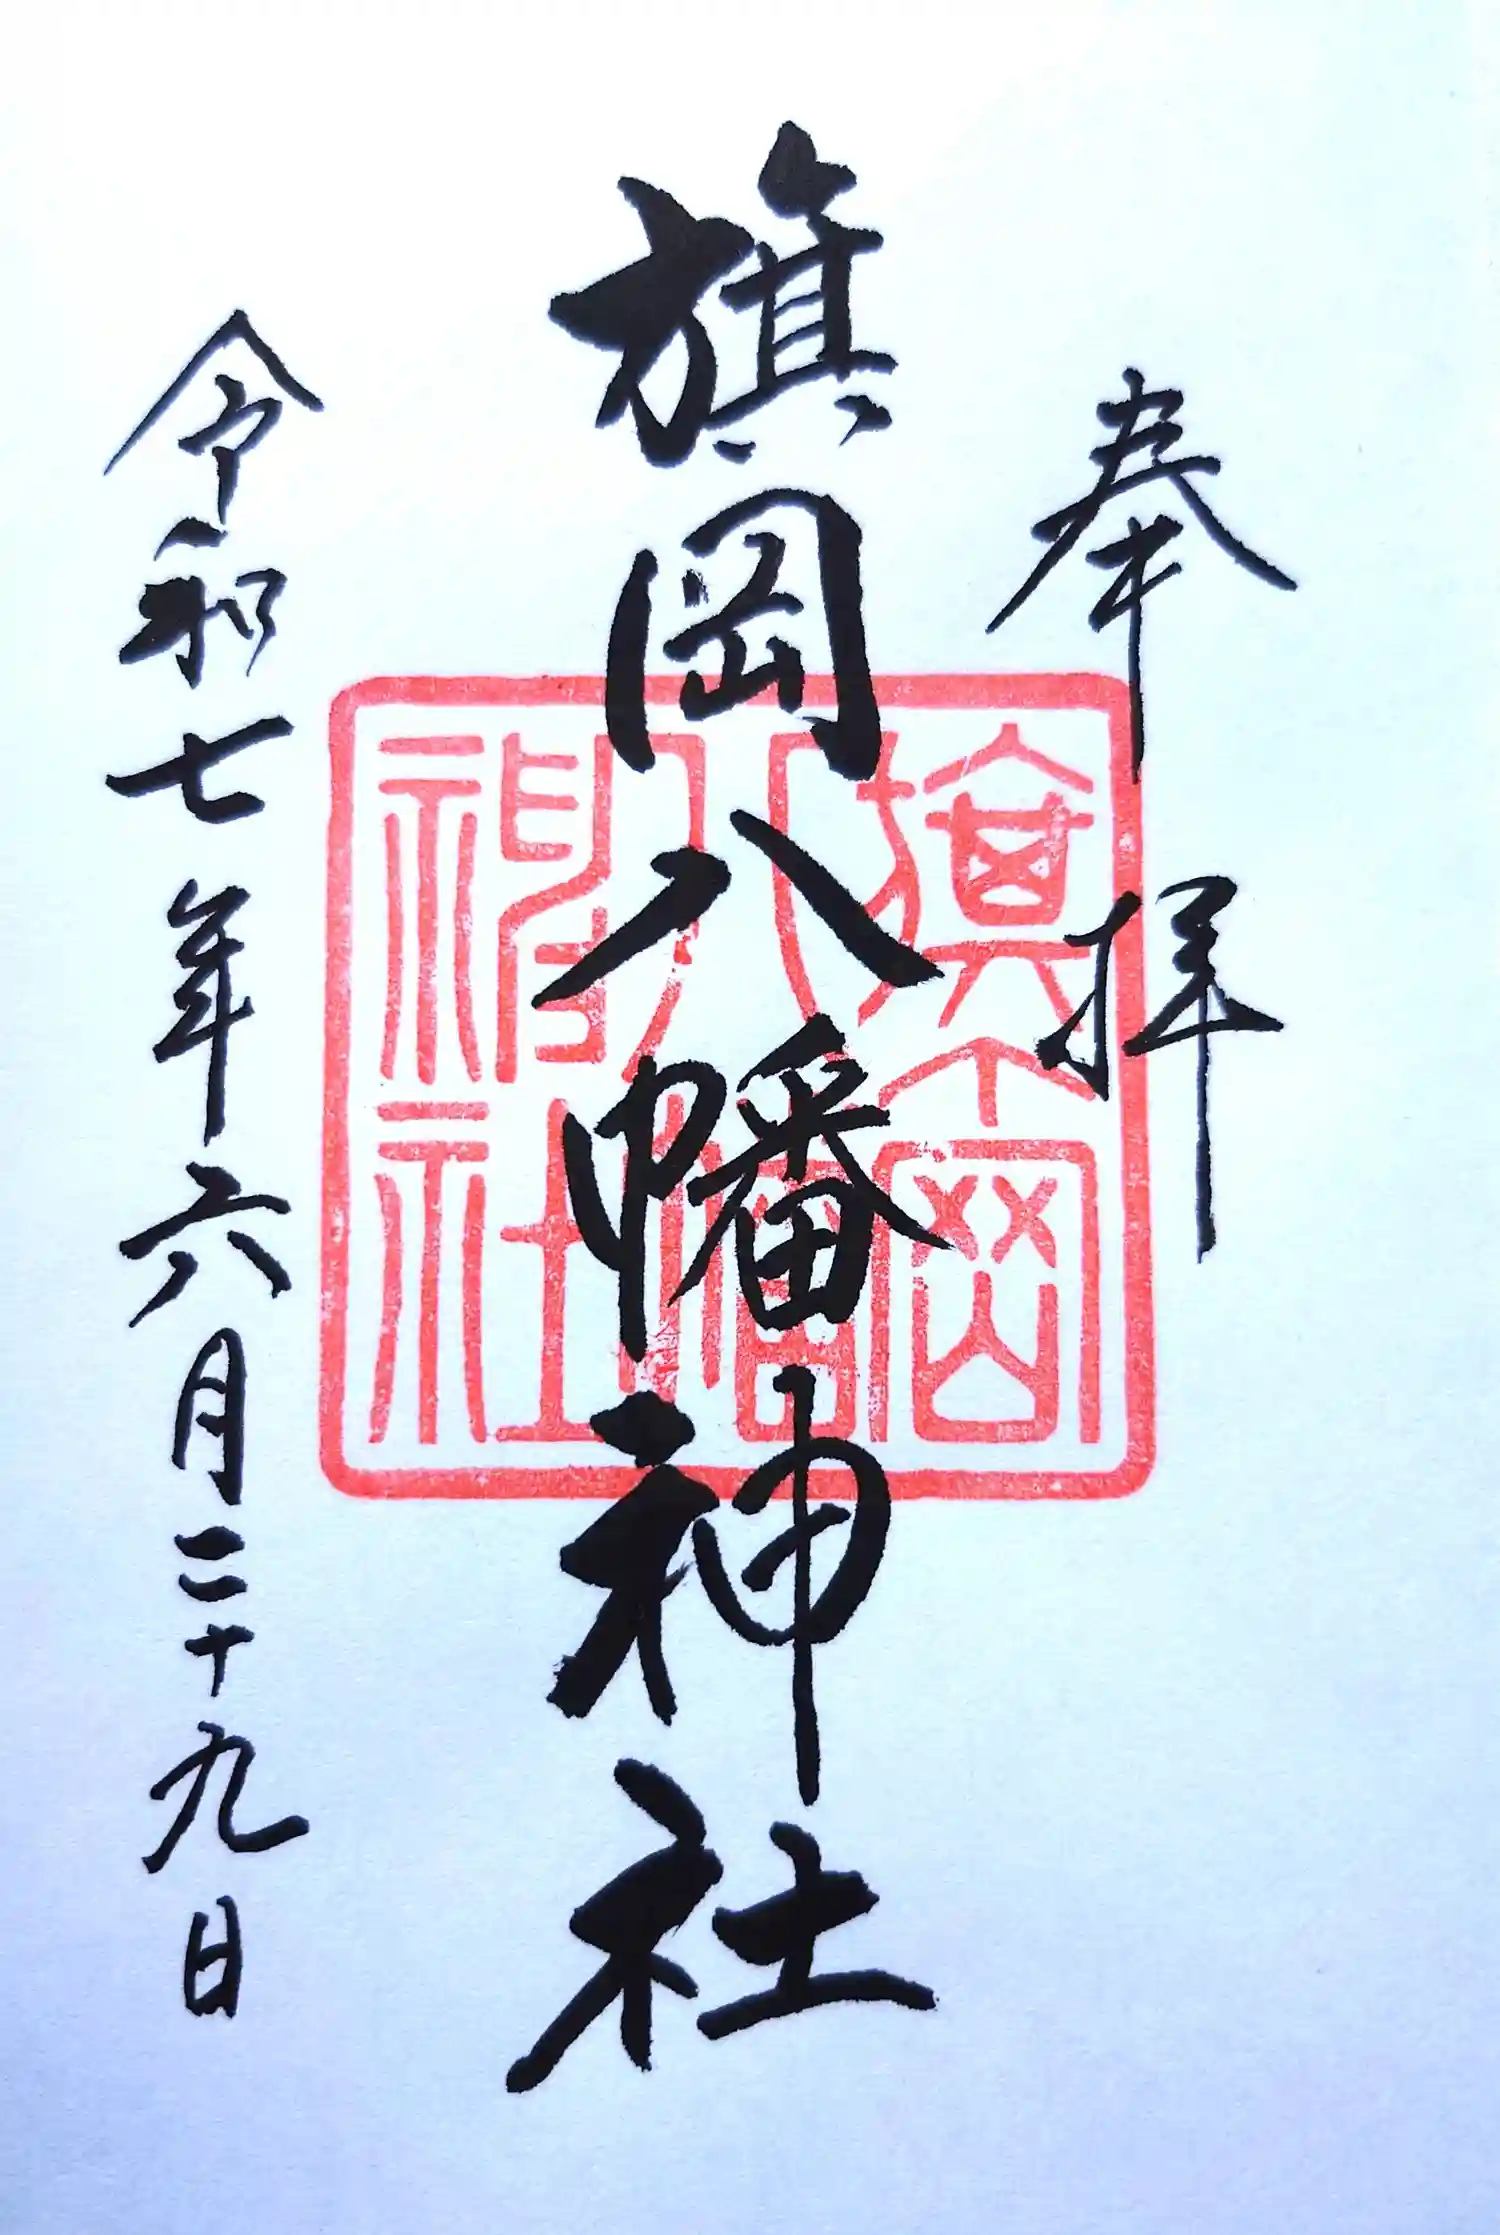 奉拝
旗岡八幡神社
旗岡八幡神社
令和七年六月二十九日